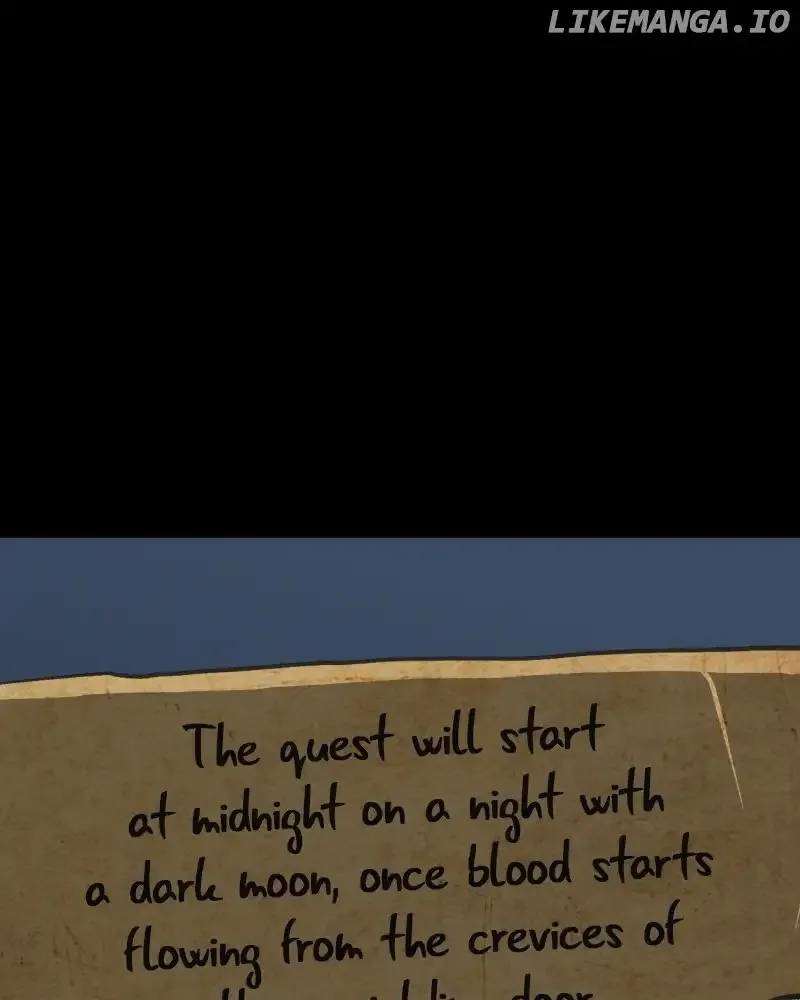 LIKEMANGA.IO
The quest will start
at midnight on a night with
a dark moon, once blood starts
flowing from the crevices of
door